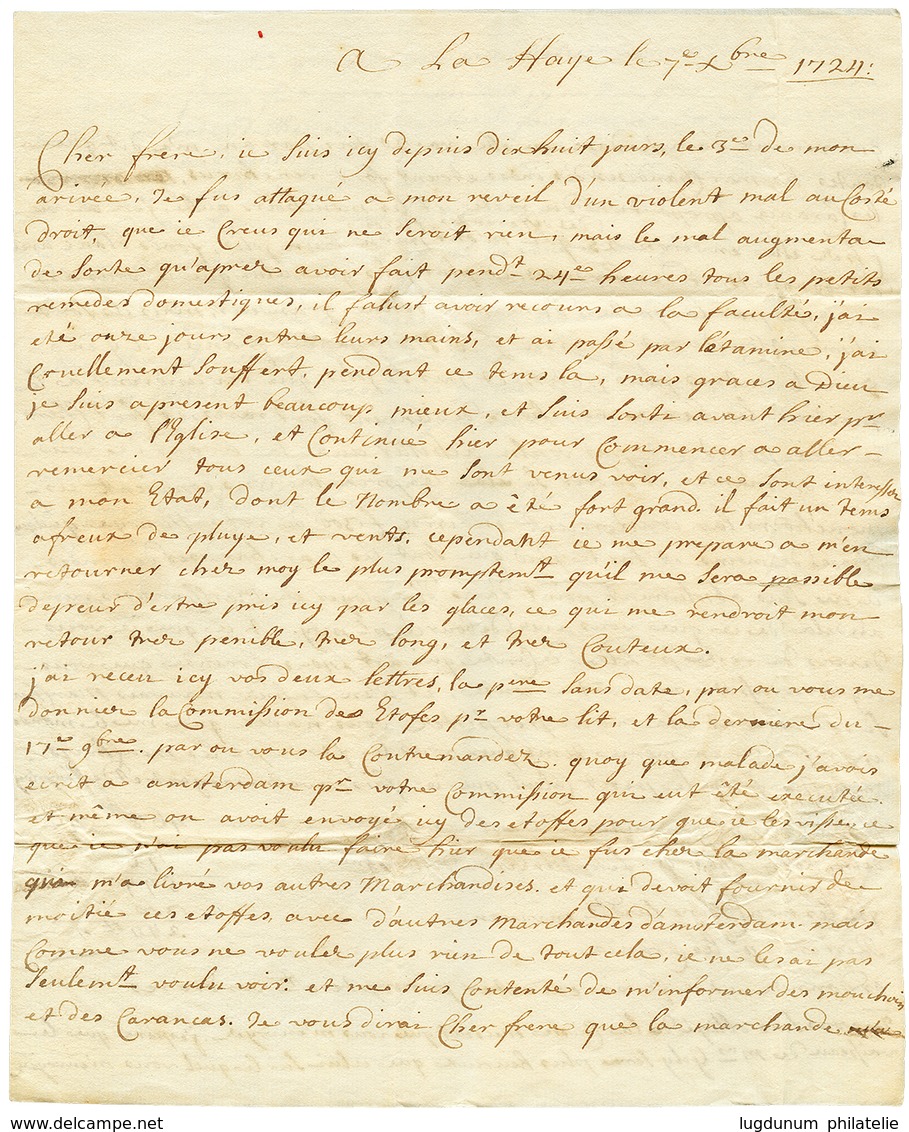 A La Haye le 7e Xbre 1724:
Cher frere, ie suis icy depuis dix huit jours, le 3e de mon
arivée, Je fus attaqué a mon reveil d'un violent mal au Costé
droit, que ie Creus qui ne seroit rien, mais le mal augmenta
de sorte qu'aprez avoir fait pendt 24e heures tous les petits
remedes domestiques, il falust avoir recours a la faculté, j'ai
eté onze jours entre leurs mains, et ai passé par l'étamine, j'ai
Cruellement souffert, pendant ce tems la, mais graces a Dieu
je suis apresent beaucoup mieux, et suis sorti avant hier pr
aller a l'Eglise, et Continué hier pour Commencer a aller-
remercier tous ceux qui me sont venus voir, et ce sont interessez
a mon Etat, dont le Nombre a êté fort grand. il fait un tems
afreux de pluye, et vents, cependant ie me prepare a m'en
retourner chez moy le plus promptemt qu'il me sera possible
depeur d'estre pris icy par les glaces, ce qui me rendroit mon
retour trez penible, trez long, et trez Couteux.
j'ai receu icy vos deux lettres, la pere sans date, par ou vous me
donniez la Commission des Etofes pr votre lit, et la derniere du-
17e 9bre. par ou vous la Contremandez. quoy que malade j'avois
ecrit a amsterdam pr votre Commission qui eut êté executée
et même on avoit envoyé icy des etoffes pour que ie les visse, ce
que ie n'ai pas voulu faire hier que ie fus chez la marchande
qui m'a livré vos autres Marchandises. et qui devoit fournir de
moitié ces etoffes avec d'autres Marchandes d'amsterdam. mais
Comme vous ne voulez plus rien de tout cela, ie ne les ai pas
seulemt voulu voir: et me suis Contenté de m'informer des mouchoirs
et des Carancas. Je vous dirai Cher frere que la marchande
lugdunum philatelie
www.delcampe.net